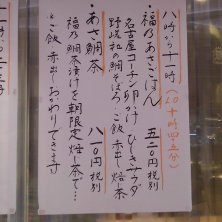 八時から十一時(LO十時四五分)
・福乃あさごはん 五二〇円税別
名古屋コーチン卵かけ ひじきサラダ
野呂和の鯛そぼろ ご飯 赤出し 焙じ茶
・あさ鯛茶 八一〇円税別
福乃鯛茶漬けを朝限定焙じ茶で…
※ご飯、赤出しおかわりできます